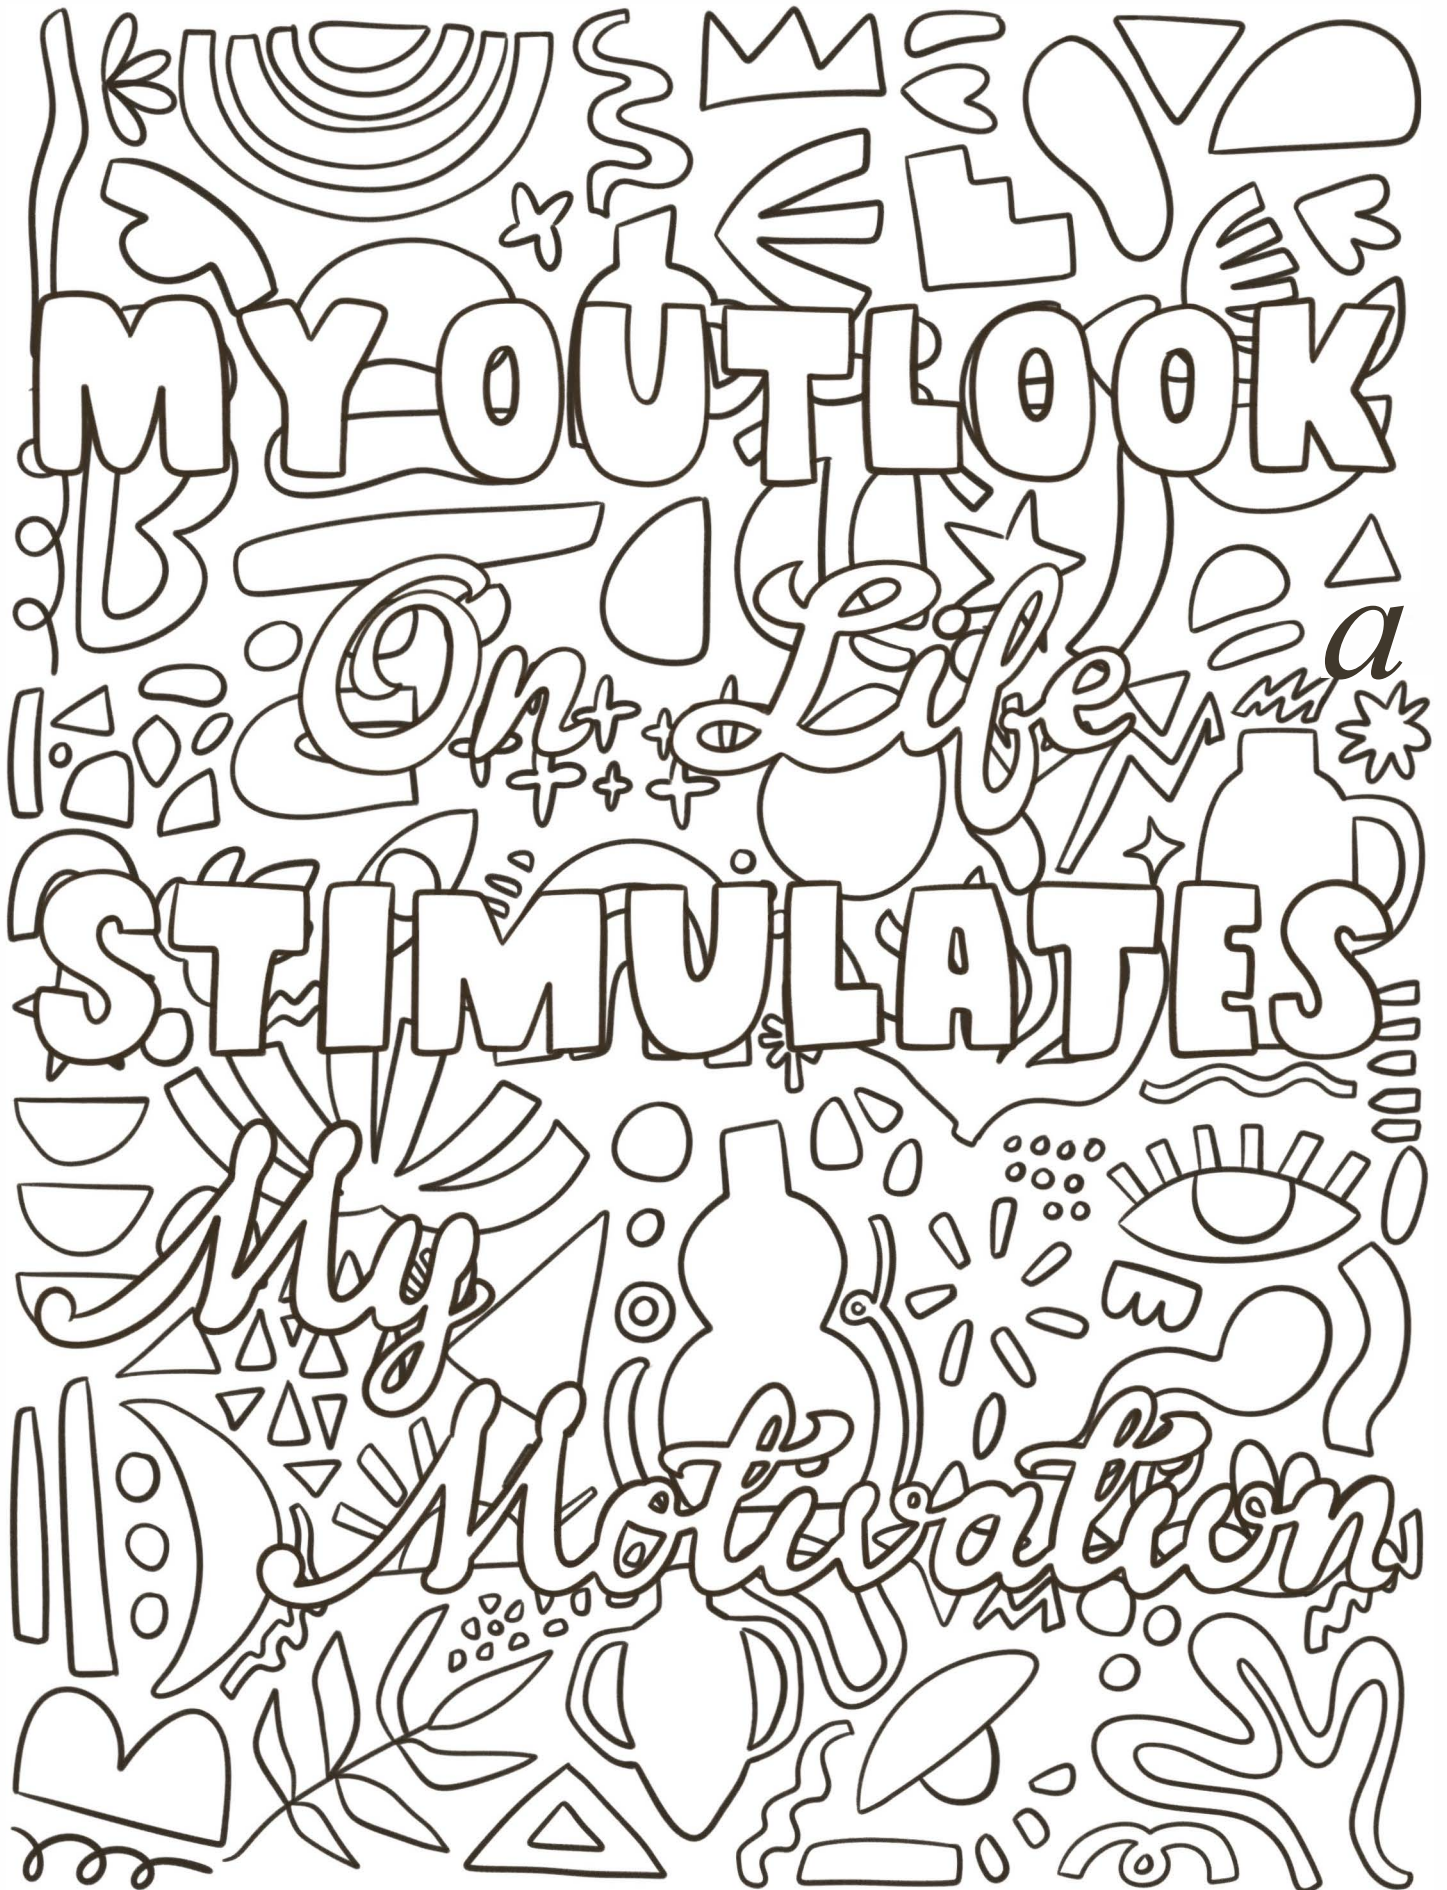 MY OUTLOOK
On Life
a
STIMULATES
My
Motivation